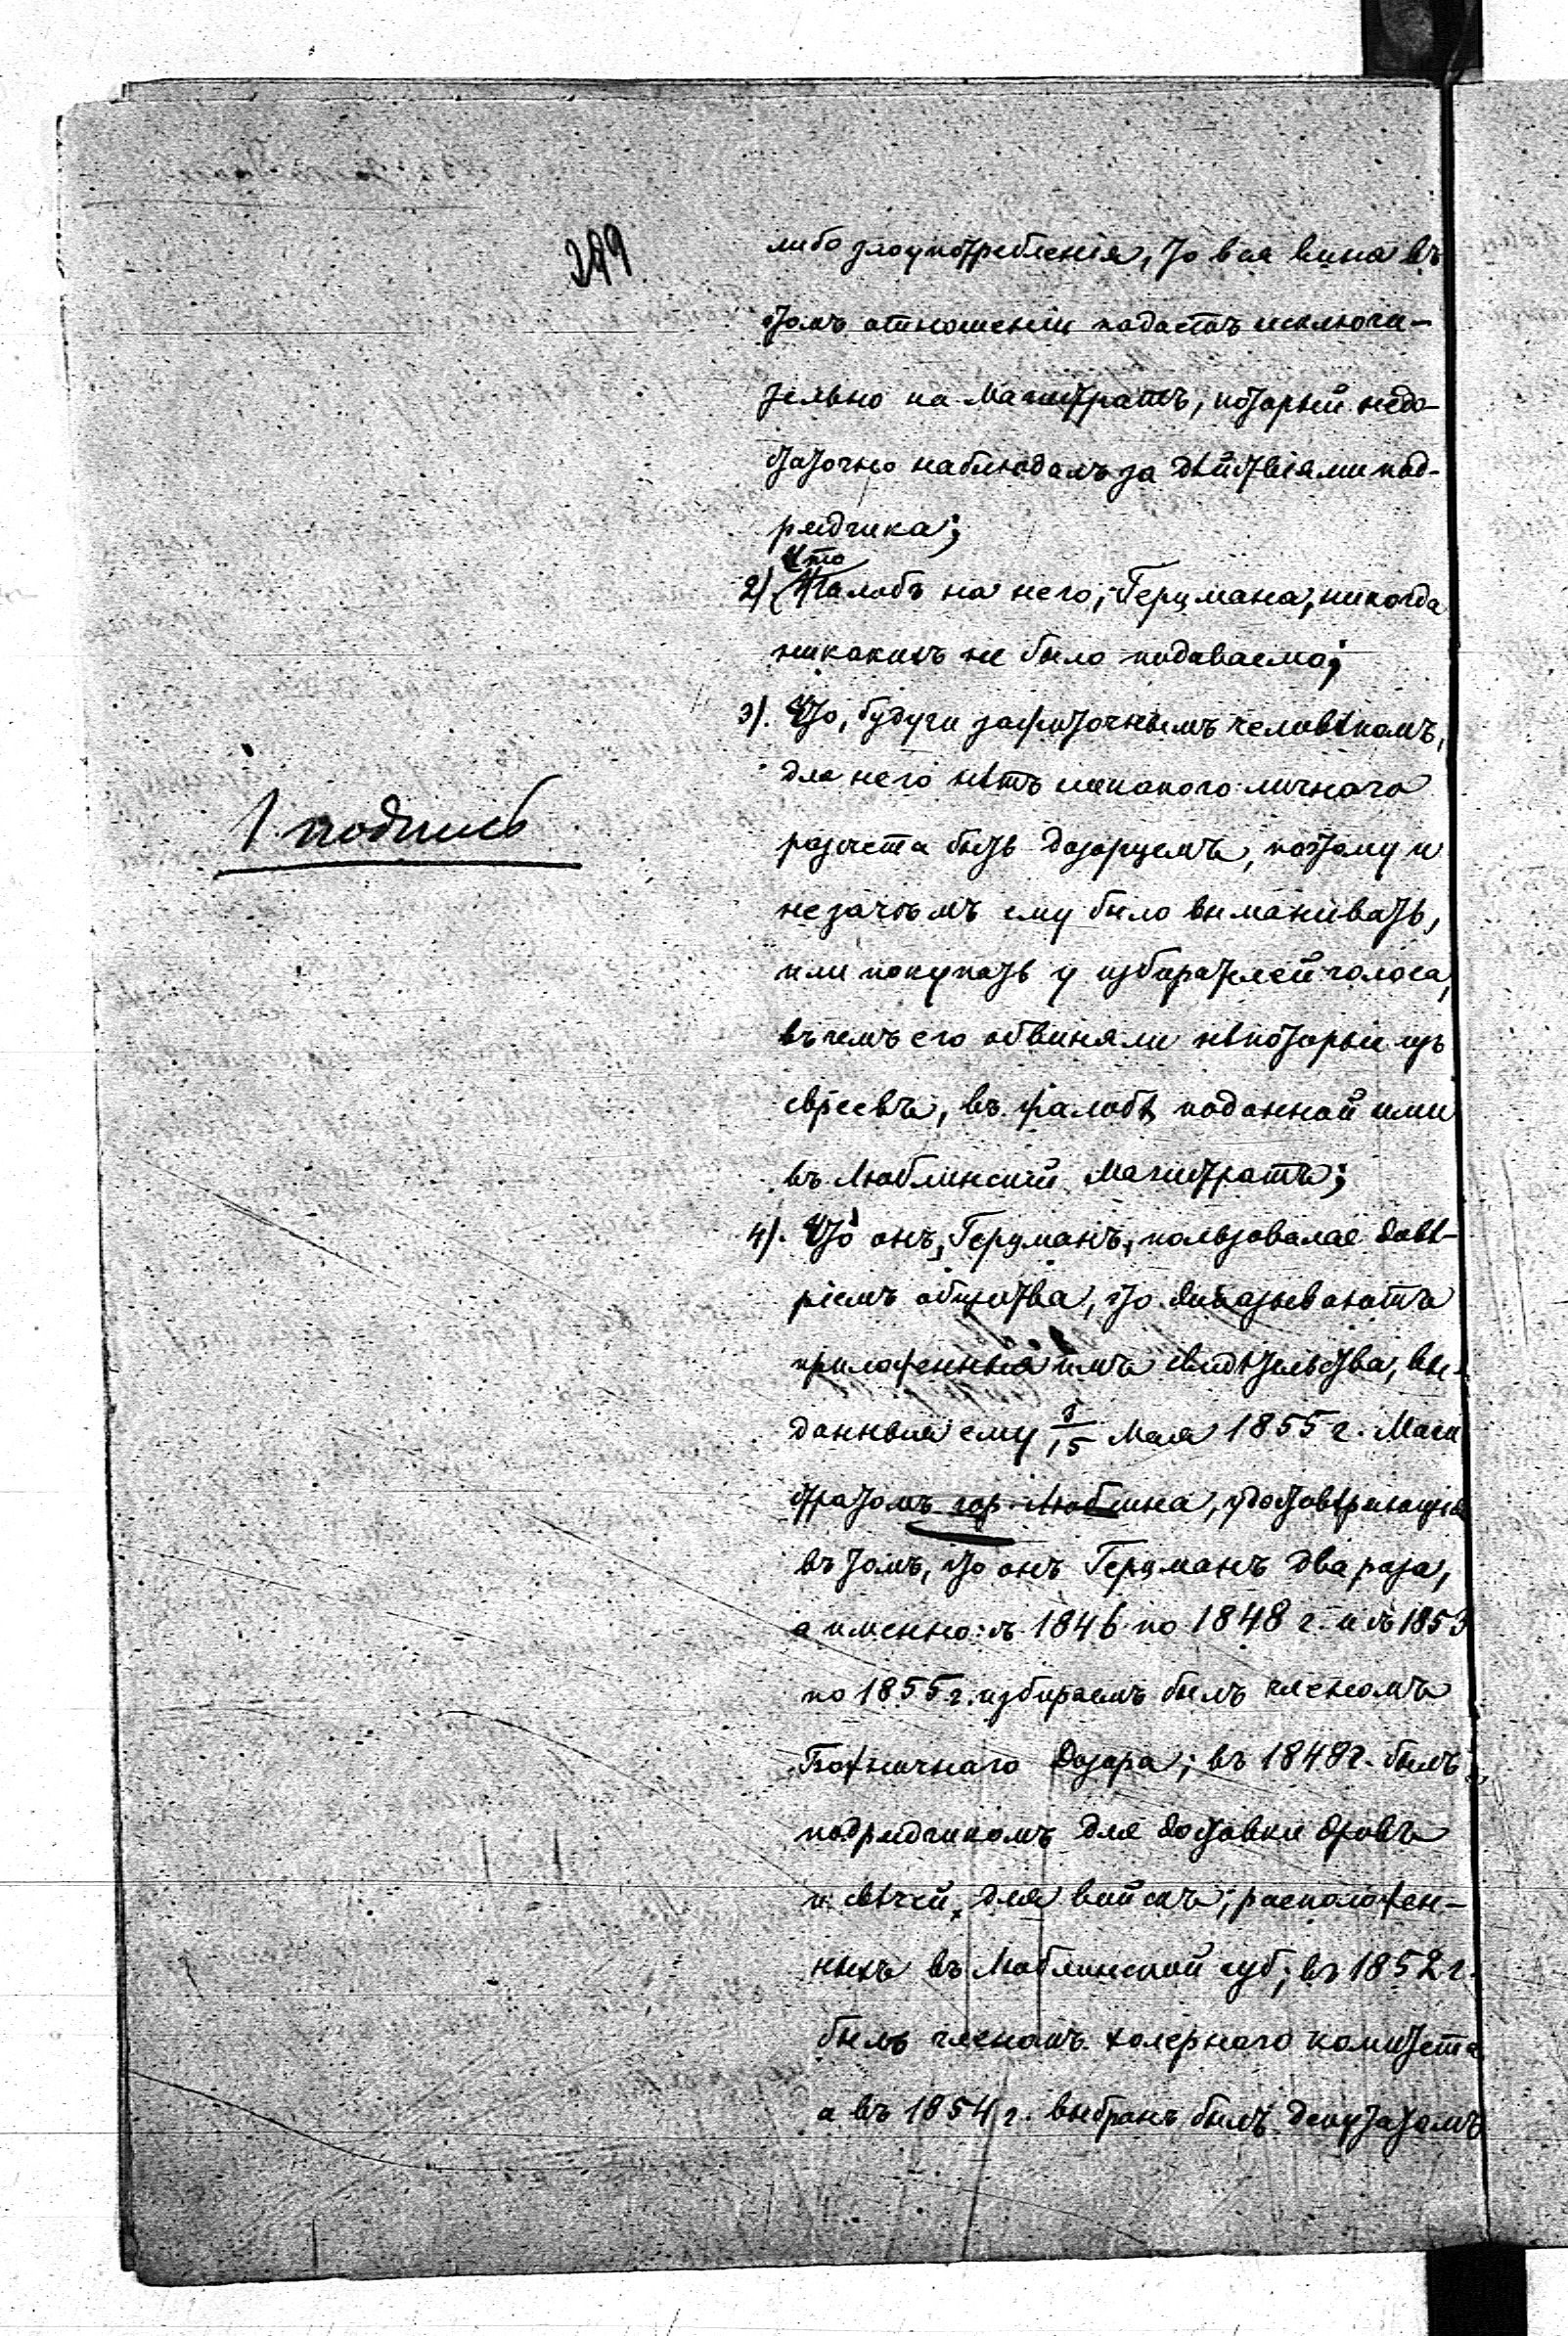 299
либо злоупотребленія, то вся вина въ
томъ отношеніи падаетъ исключи-
тельно на Магистратъ, который недо-
статочно наблюдалъ за дѣйствіями под-
рядчика;
Что
2) Жалобъ на него, Герцмана, никогда
никакихъ не было подаваемо;
3). Что, будучи зажиточнымъ человѣкомъ,
для него нѣтъ никакого личнаго
разчета быть дозорцемъ, поэтому и
незачѣмъ ему было выманивать,
или покупать у избирателей голоса,
въ чемъ его обвиняли нѣкоторые изъ
евреевъ, въ жалобѣ поданной ими
въ Люблинскій Магистратъ;
1 подпись
4). Что онъ, Герцманъ, пользовался довѣ-
ріемъ общества, это доказываютъ
приложенныя имъ свидѣтельства, вы-
данныя ему 3/15 Мая 1855 г. Маги
стратомъ гор. Люблина, удостовѣряющія
въ томъ, что онъ Герцманъ два раза,
а именно: съ 1846 по 1848 г. и съ 1853
по 1855 г. избираемъ былъ членомъ
Божничнаго Дозора; въ 1848 г. былъ
подрядчикомъ для доставки дровъ
и свѣчей, для войскъ, расположен-
ныхъ въ Люблинской губ; въ 1852 г.
былъ членомъ холернаго комитета
а въ 1854 г. выбранъ былъ депутатомъ